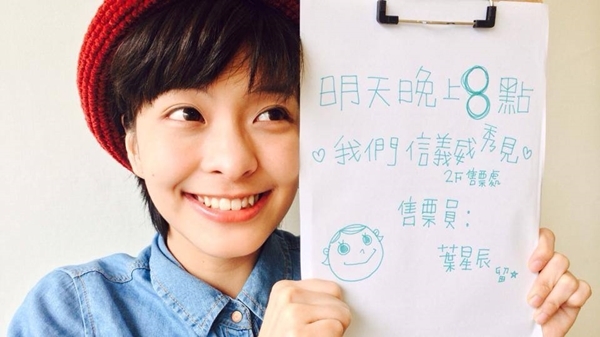 明天晚上8點
♡我們信義威秀見♡
2F售票處
售票員:
葉星辰
留☆